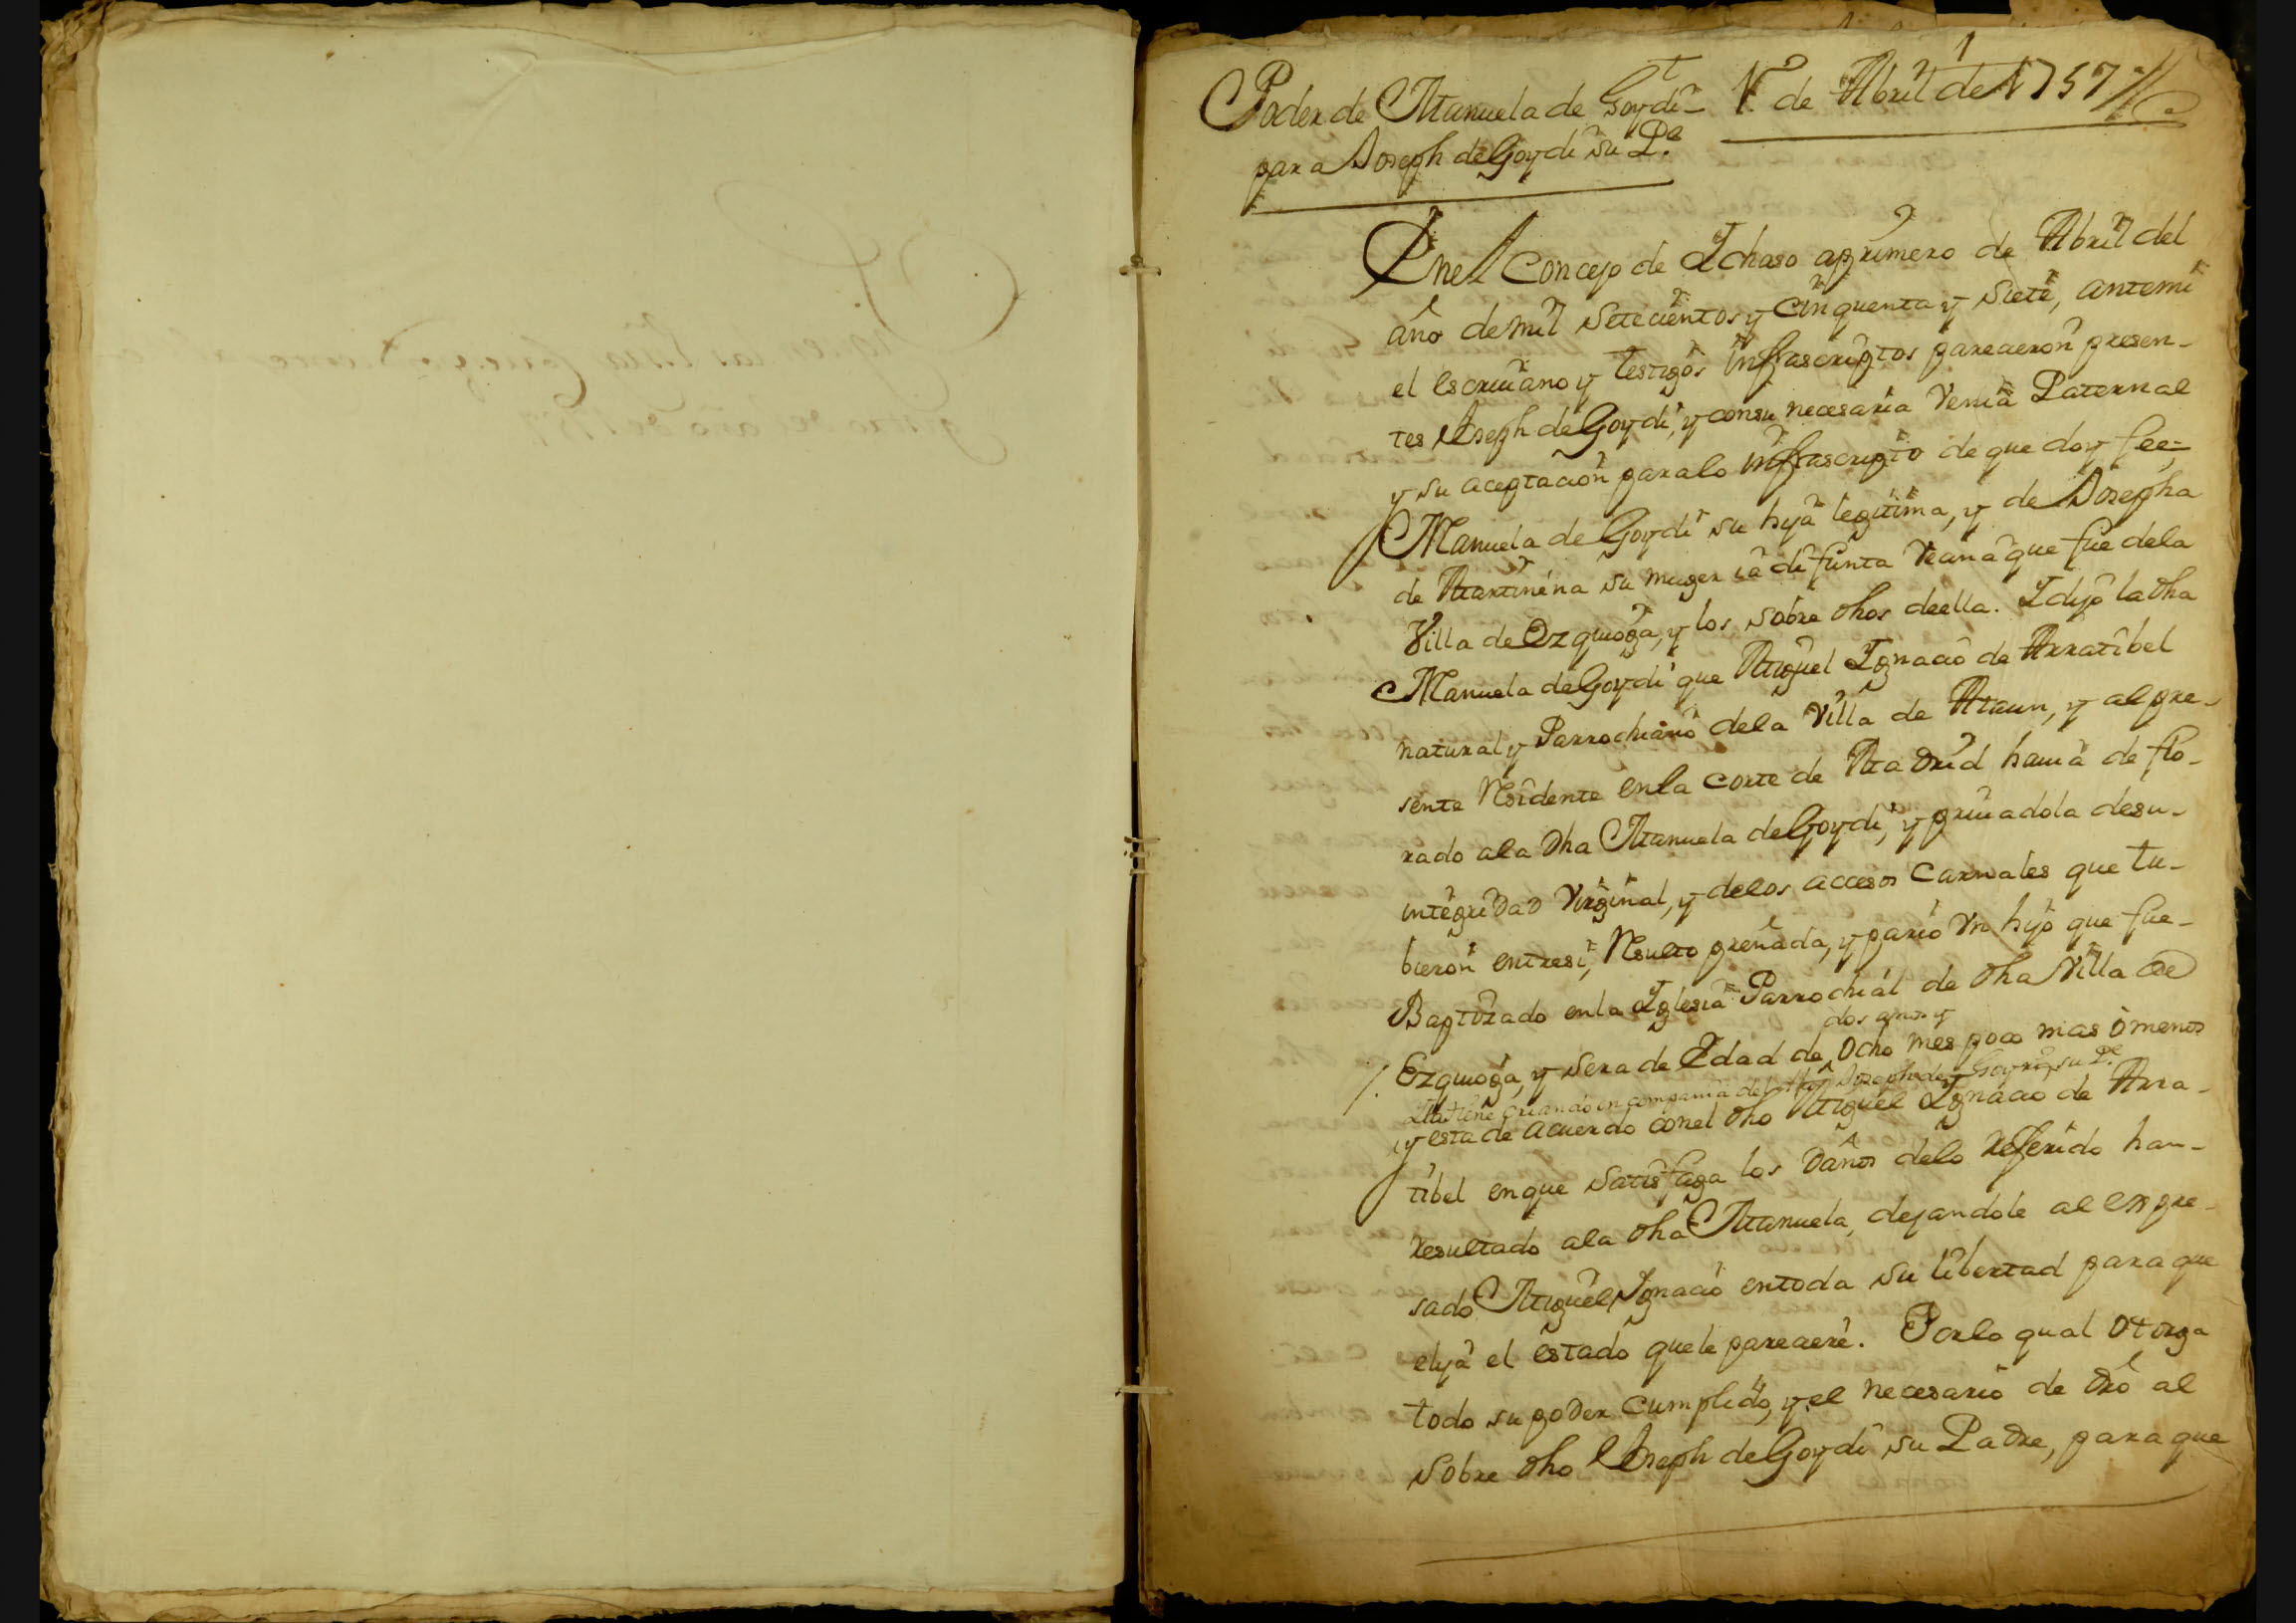 1
Poder de Manuela de Goydi
para Joseph de Goydi su P.e
1.º de Abril de 1757
En el Concejo de Ichaso aprimero de Abril del
año de mil setecientos y cinquenta y siete, antemi
el escriuano y testigos infrascriptos parecieron presen-
tes Joseph de Goydi, y consu necesaria Venia Paternal
y su aceptacion paralo infrascripto de que doy fee=
Manuela de Goydi su hija legitima, y de Josepha
de Martinena su muger ia difunta Vecina que fue dela
Villa de Ezquioga, y los sobre dhos deella. I dijo la dha
Manuela de Goydi que Miguel Ignacio de Arratibel
natural y Parrochiano dela Villa de Ataun, y al pre-
sente Residente enla Corte de Madrid hauia de flo-
rado ala dha Manuela de Goydi, y priuadola desu-
integridad Virginal, y delos accesos Carnales que tu-
bieron entresi, Resulto preñada, y pario Vn hijo que fue-
Baptizado enla Iglesia Parrochial de dha Villa de
dos años y
Ezquioga, y sera de Edad de ocho mes poco mas ò menos
tiene criando en compania del Joseph de Goydi su P.e
y esta de acuerdo conel dho Miguel Ignacio de Arra-
tibel enque satisfaga los Daños delo Referido hau-
resultado ala dha Manuela, dejandole al expre-
sado Miguel Ignacio entoda su libertad para que
elija el estado quele pareciere. Porlo qual otorga
todo su poder Cumplido, y el necesario de dro al
sobre dho Joseph de Goydi su Padre, para que